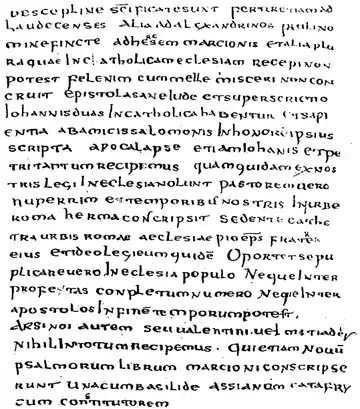 descepline scificate sunt fertur etiam ad
Laudecenses alia ad alexandrinos pauli no
mine fincte ad heresem marcionis et alia plu
ra quae in catholicam eclesiam recepi non
potest fel enim cum melle misceri non con
cruit epistola sane iude et superscrictio
iohannis duas in catholica habentur et sapi
entia ab amicis salomonis in honore ipsius
scripta apocalapse etiam iohanis et pe
tri tantum recipemus quam quidam ex nos
tris legi in eclesia nolunt pastorem uero
nuperrim et temporibus nostris in urbe
roma herma conscripsit sedente cathe
tra urbis romae aeclesiae pio eps frater
eius et ideo legi eum quidē oportet se pu
plicare uero in eclesia populo neque inter
profetas conpletum numero neque inter
apostolos in fine temporum potest.
Arsinoi autem seu ualentini. uel mitiadis
nihil in totum recipemus. qui etiam nouū
psalmorum librum marcioni conscripse
runt una cum basilide assianum catafry
cum constitutorem